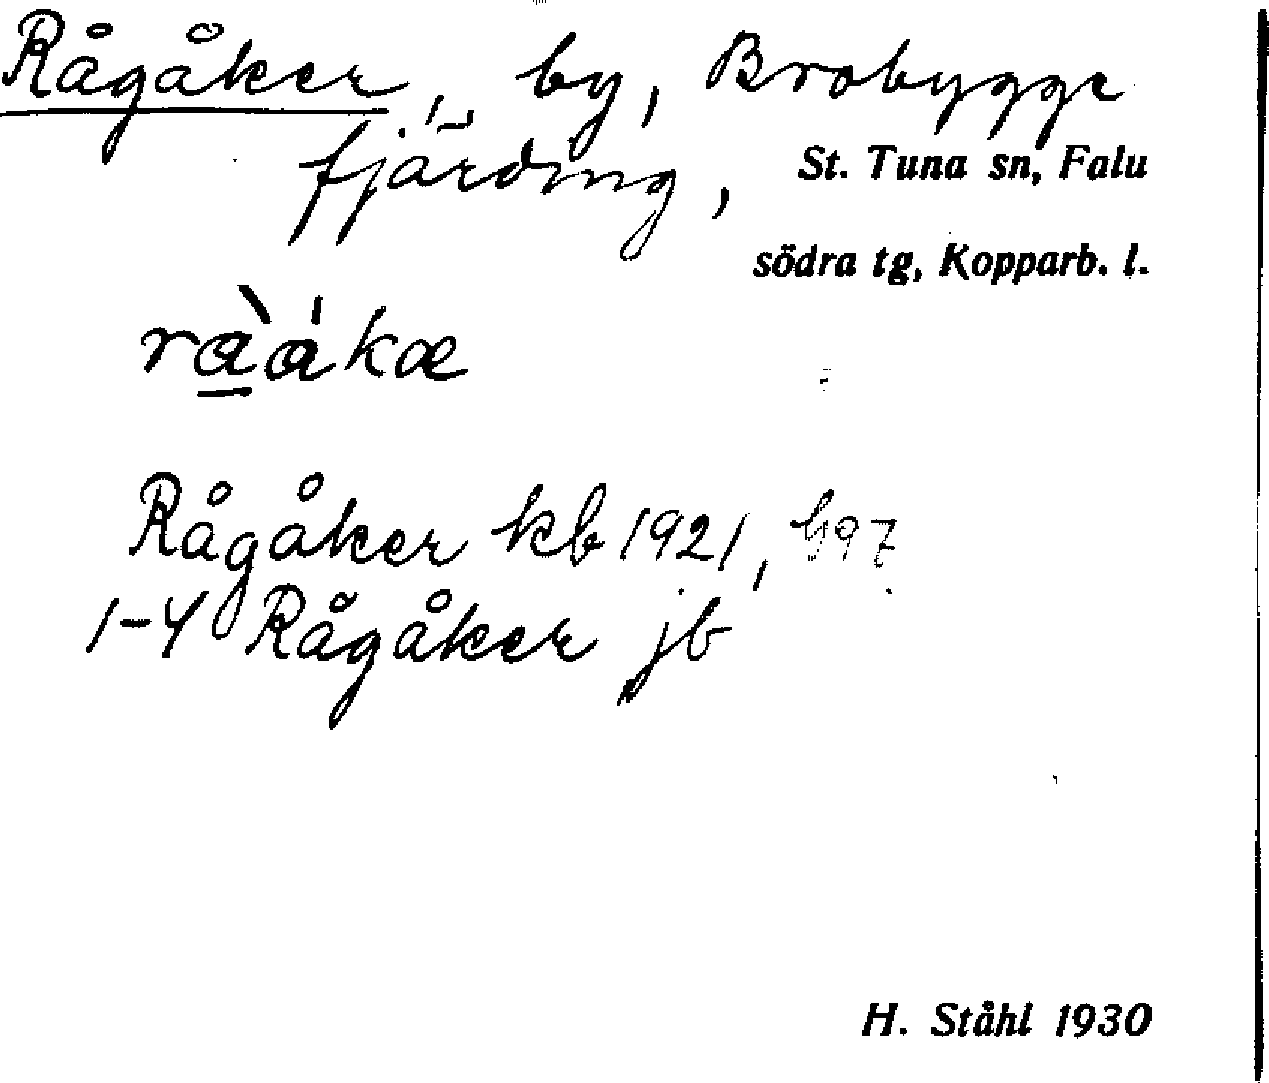 Rågåker, by, Brobygge
fjärding, St. Tuna sn, Falu
södra tg, Kopparb. l.
Rågåker kb 1921,
1-4 Rågåker jb
H. Ståhl 1930